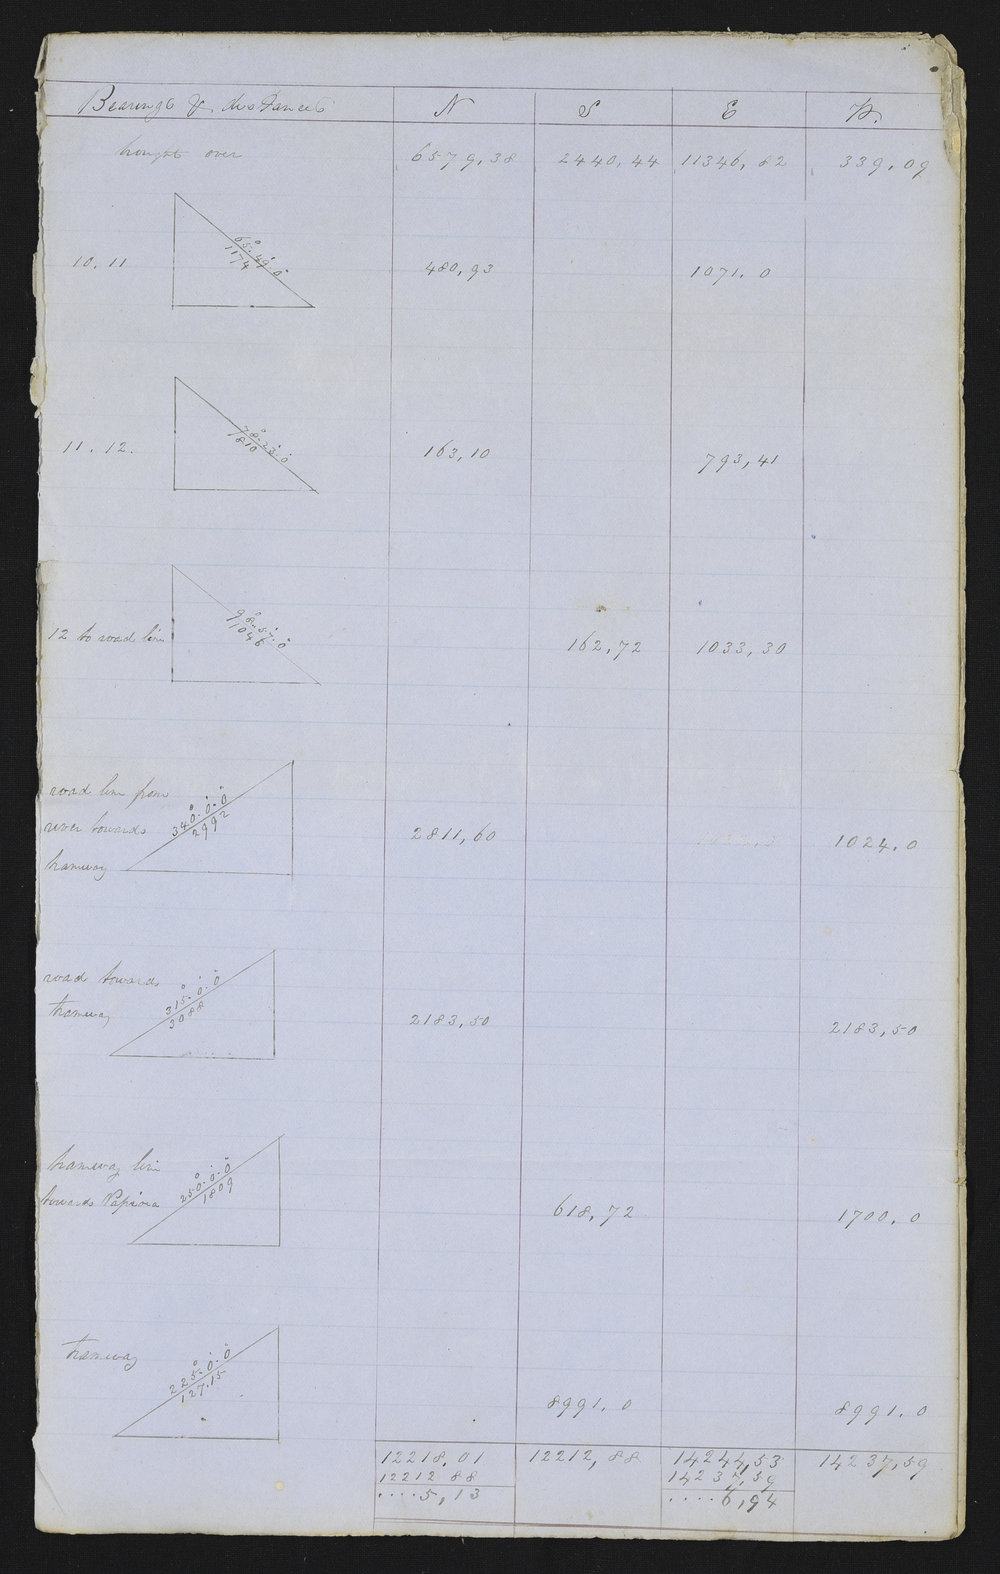 Bearings & distances N S E W.
brought over 6579,38 2440,44 11346,82 339,09
65°.49'.0"
1174
10.11 480,93 1071.0
78°.23'.0"
810
11.12. 163,10 793,41
98°.57'.0"
1046
12 to road line 162,72 1033,30
road line from
340°.0'.0"
river towards 2992 2811,60 1024.0
tramway
road towards
315°.0'.0"
tramway 3088 2183,50 2183,50
tramway line
250°.0'.0"
towards 1809 618,72 1700.0
tramway
225°.0'.0"
127.15
8991.0 8991.0
12218,01 12212,88 14244,53 14237,59
12212 88 14237,59
....5,13 ....6,94